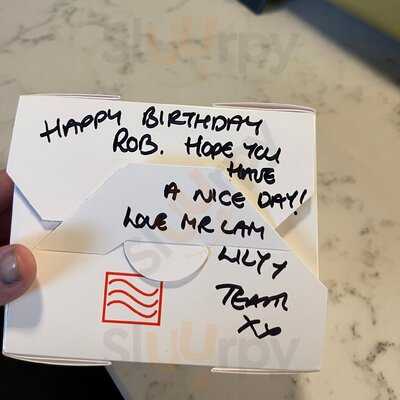 sluurpy
HAPPY BIRTHDAY
ROB. HOPE YOU
HAVE
A NICE DAY!
LOVE MR LAM
LILY
TEAM
XX
sluurpy